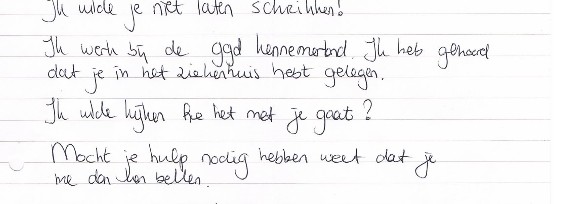 Ik wilde je niet laten schrikken!
Ik werk bij de ggd kennemerland. Ik heb gehoord
dat je in het ziekenhuis hebt gelegen.
Ik wilde kijken hoe het met je gaat?
Mocht je hulp nodig hebben weet dat je
me dan kan bellen.